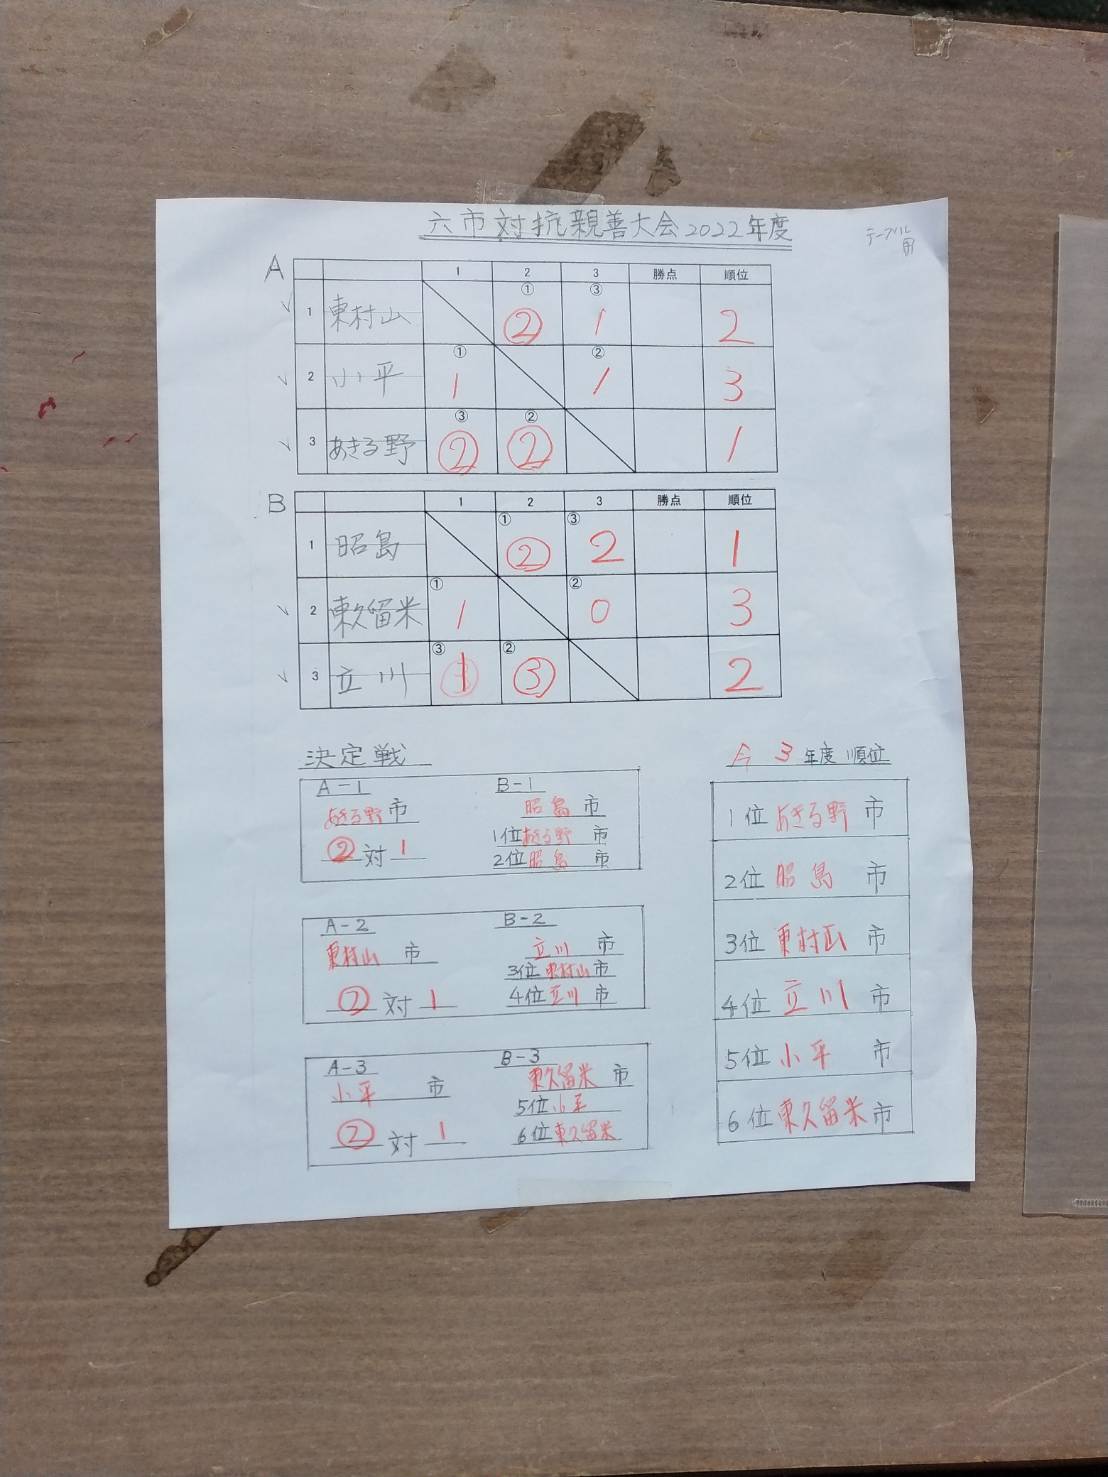 六市対抗親善大会2022年度
テーブル用
A
1 2 3 勝点 順位
1 東村山 ① ② ③ 1 2
2 小平 ① 1 ② 1 3
3 あきる野 ③ ② ② ② 1
B
1 2 3 勝点 順位
1 昭島 ① ② ③ 2 1
2 東久留米 ① 1 ② 0 3
3 立川 ③ 1 ② ③ 2
決定戦
A-1 B-1
あきる野市 昭島市
② 対 1
1位あきる野市
2位昭島市
A-2 B-2
東村山市 立川市
② 対 1
3位東村山市
4位立川市
A-3 B-3
小平市 東久留米市
② 対 1
5位小平
6位東久留米
今3年度順位
1位あきる野市
2位昭島市
3位東村山市
4位立川市
5位小平市
6位東久留米市